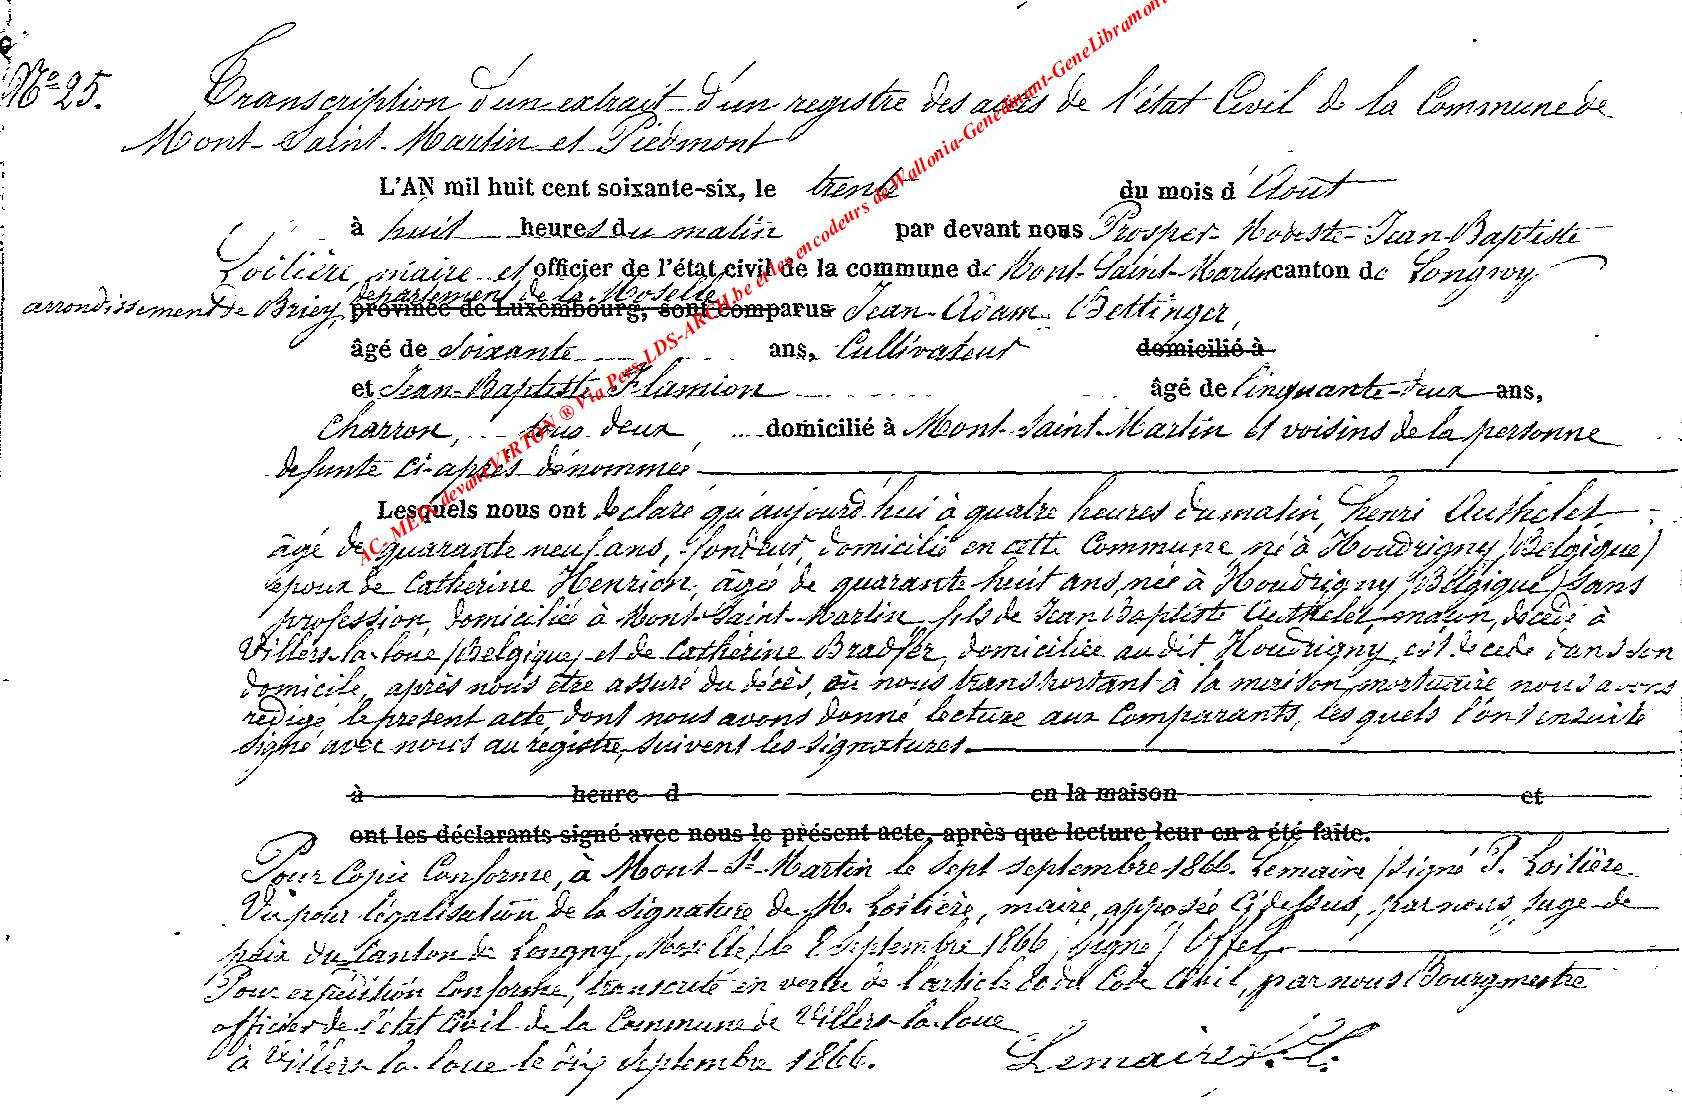 Nº 25.
Transcription d'un extrait d'un registre des actes de l'état Civil de la Commune de
Mont-Saint-Martin et Piedmont
L'AN mil huit cent soixante-six, le trente du mois d'Aout
à huit heures du matin par devant nous Prosper-Modeste-Jean-Baptiste
Loilière, maire et officier de l'état civil de la commune de Mont-Saint-Martin canton de Longwy
département de la Moselle
arrondissement de Briey, province de Luxembourg, sont comparus Jean-Adam Bettinger,
âgé de soixante ans, Cultivateur domicilié à
et Jean-Baptiste Flamion âgé de Cinquante-deux ans,
Charron, tous deux, domicilié à Mont-Saint-Martin et voisins de la personne
defunte ci-après dénommée
Lesquels nous ont declaré qu'aujourd'hui à quatre heures du matin, Henri Authelet
âgé de quarante neuf ans, fondeur, domicilié en cette Commune, né à Houdrigny (Belgique)
epoux de Catherine Henrion, âgée de quarante huit ans, née à Houdrigny (Belgique) sans
profession, domiciliée à Mont-Saint-Martin, fils de Jean Baptiste Authelet, maçon, décédé à
Villers-la-loue (Belgique) et de Cathérine Bradfer, domiciliée au dit Houdrigny, est decede dans son
domicile, après nous être assuré du décès, en nous transportant à la maison mortuaire nous avons
redigé le present acte, dont nous avons donné lecture aux Comparants, les quels l'ont ensuite
signé avec nous au registre, suivent les signatures.
à heure d en la maison et
ont les déclarants signé avec nous le présent acte, après que lecture leur en a été faite.
Pour Copie Conforme, à Mont-St-Martin le sept septembre 1866. Lemaire (signé P. Loilière
Vu pour légalisation de la signature de M. Loilière, maire, apposée Ci dessus, par nous, juge de
paix du Canton de Longwy, Moselle) le 8 septembre 1866, (signé) Uffel.
Pour expédition Conforme, transcrite en vertu de l'article 80 du Code Civil, par nous Bourgmestre
officier de l'état Civil de la Commune de Villers-la-loue
à Villers-la-loue le dix septembre 1866. Lemaire
AC-MEIX-devant-VIRTON ® Via Pers-LDS-ARCH.be et les encodeurs de Wallonia-Genedinant-GeneLibramont